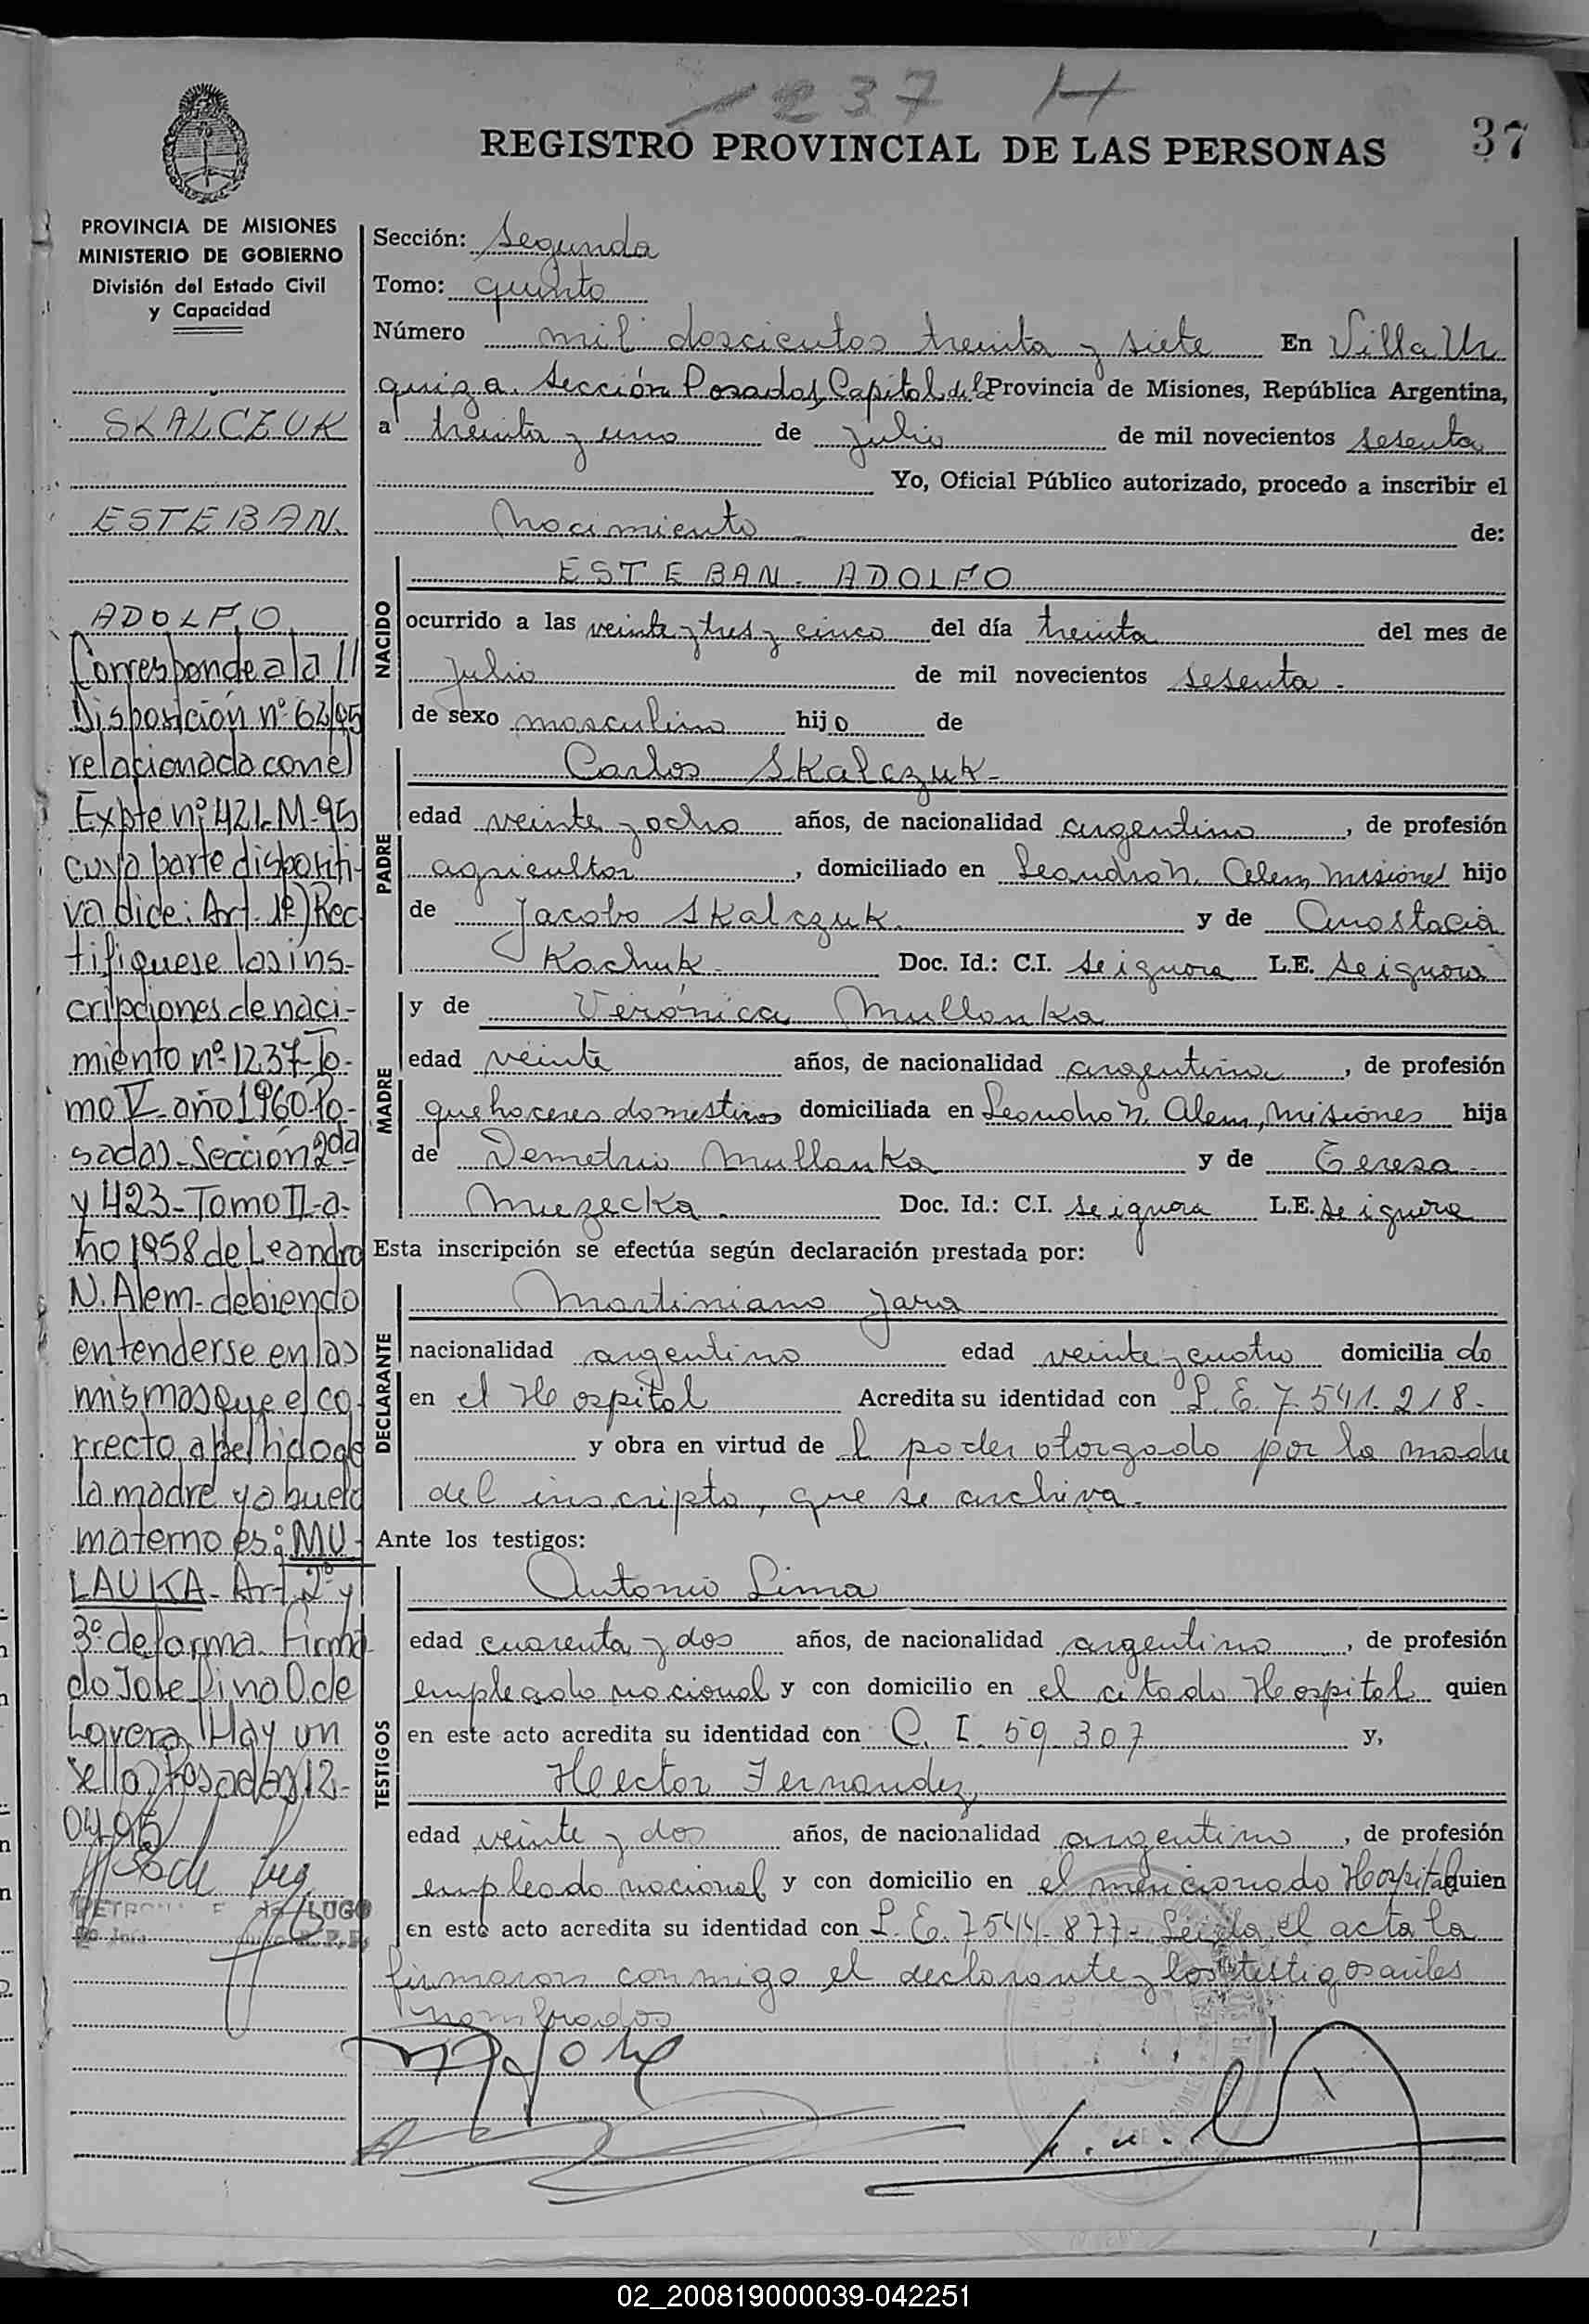 1237 H
REGISTRO PROVINCIAL DE LAS PERSONAS
37
PROVINCIA DE MISIONES
MINISTERIO DE GOBIERNO
División del Estado Civil
y Capacidad
SKALCZUK
ESTEBAN
ADOLFO
Corresponde a la
Disposición nº 62/95
relacionada con el
Expte nº 421-M-95
cuya parte dispositi-
va dice: Art. 1º) Rec-
tifiquese las ins-
cripciones de naci-
miento nº 1237-To-
mo V- año 1960 Po-
sadas- Sección 2da
y 423- Tomo II- a-
ño 1958 de Leandro
N. Alem- debiendo
entenderse en las
mismas que el co
rrecto apellido de
la madre y abuelo
materno es: MU-
LAUKA- Art. 2º y
3º de forma. Firma
do Josefina O. de
Lovera Hay un
sello Posadas 12-
04-95
LUGO
Sección: Segunda
Tomo: quinto
Número mil doscientos treinta y siete En Villa Ur
quiza. Sección Posadas, Capital de la Provincia de Misiones, República Argentina,
a treinta y uno de julio de mil novecientos sesenta
Yo, Oficial Público autorizado, procedo a inscribir el
Nacimiento de:
NACIDO
ESTEBAN ADOLFO
ocurrido a las veinte y tres y cinco del día treinta del mes de
julio de mil novecientos sesenta.-
de sexo masculino hijo de
PADRE
Carlos Skalczuk-
edad veinte y ocho años, de nacionalidad argentino, de profesión
agricultor, domiciliado en Leandro N. Alem, Misiones hijo
de Jacobo Skalczuk y de Anastacia
Kachuk Doc. Id.: C.I. se ignora L.E. se ignora
MADRE
y de Verónica Mullauka
edad veinte años, de nacionalidad argentina, de profesión
quehaceres domesticos domiciliada en Leandro N. Alem, Misiones hija
de Demetrio Mullauka y de Teresa
Muzecka. Doc. Id.: C.I. se ignora L.E. se ignora
Esta inscripción se efectúa según declaración prestada por:
DECLARANTE
Martiniano Jara
nacionalidad argentino edad veinte y cuatro domiciliado
en el Hospital Acredita su identidad con L. E. 7.541.218-
y obra en virtud del poder otorgado por la madre
del inscripto, que se archiva.
Ante los testigos:
TESTIGOS
Antonio Lima
edad cuarenta y dos años, de nacionalidad argentino, de profesión
empleado nacional y con domicilio en el citado Hospital quien
en este acto acredita su identidad con C. I. 59.307 y,
Hector Fernandez
edad veinte y dos años, de nacionalidad argentino, de profesión
empleado nacional y con domicilio en el mencionado Hospital quien
en este acto acredita su identidad con L. E. 7544.877- Leída el acta la
firmaron conmigo el declarante y los testigos antes
nombrados
02_200819000039-042251